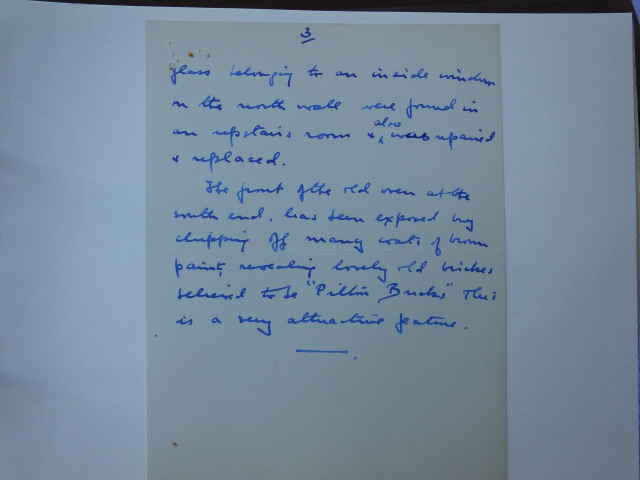 3
glass belonging to an inside window
in the north wall were found in
an upstairs room & also was repaired
& replaced.
The front of the old oven at the
south end, has been exposed by
chipping off many coats of brown
paint, revealing lovely old bricks
believed to be "Pilton Bricks" This
is a very attractive feature.